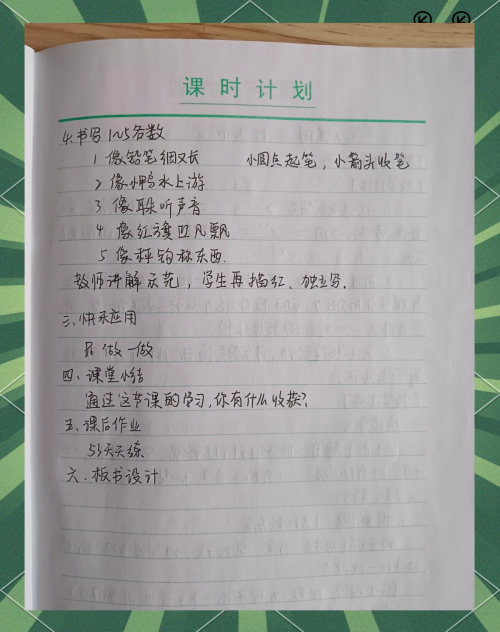 课时计划
4.书写1~5各数
1 像铅笔细又长 小圆点起笔,小箭头收笔
2 像小鸭水上游
3 像耳朵听声音
4 像红旗迎风飘
5 像秤钩称东西.
教师讲解示范,学生再描红、独立写.
三.快乐应用
做一做
四.课堂小结
通过这节课的学习,你有什么收获?
五.课后作业
53天天练
六.板书设计